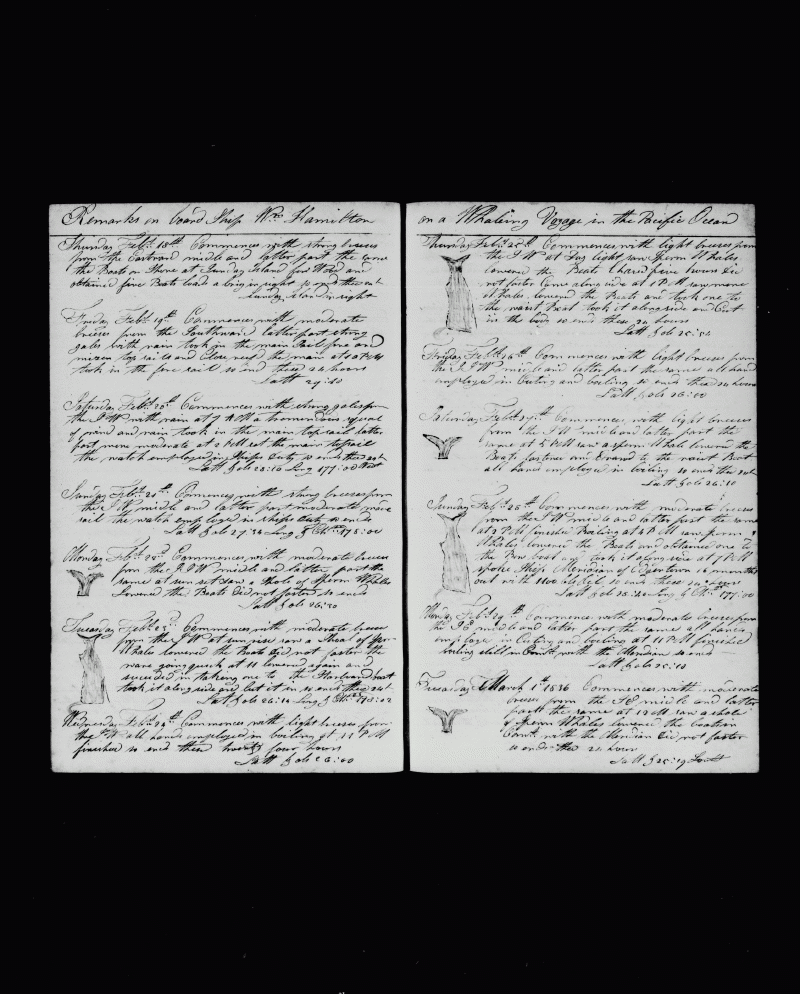 Remarks on board Ship Wm Hamilton
Thursday Feb. 18th Commences with strong breeses
from the Eastward midle and latter part the same
the Boats on Shore at Sunday Island for Wood and
obtained five Boats loads a brig in sight so end these 24
Sunday Island in sight
Friday Feb. 19th Commences with moderate
breeses from the Southward latter part strong
gales with rain took in the main Sail fore and
mizen top sails and close reeft the main at 8 PM
took in the fore sail so end these 24 hours
Latt 29:10
Saturday Feb. 20th Commences with strong gales from
the with rain at 7 AM a tremendious squal
of wind and rain took in the main top sail latter
part more moderate at 2 PM set the main topsail
the watch employed in Ships Duty so ends these 24
Latt By ob 28:16 Long 177:00 West
Sunday Feb. 21st Commences with strong breeses from
the midle and latter part moderate made
sail the watch employed in ships Duty so ends
Latt By ob 27:34 Long By 178:00
Monday Feb. 22nd Commences with moderate breeses
from the midle and latter part the
same at sun set saw a Shole of Sperm Whales
Lowered the Boats did not fasten so ends
Latt By ob 26:30
Tuesday Feb. 23rd Commences with moderate breeses
from the at sunrise saw a Shoal of
Whales lowered the boats did not fasten the
ware going quick at 11 lowered again and
succeeded in taking one to the Starboard boat
took it along side and cut it in so ends these 24
Latt By ob 26:14 Long By 178:02
Wednesday Feb. 24th Commences with light breeses from
the all hands employed in boiling at 11 PM
finished so end these twenty four hours
Latt By ob 26:00
on a Whaleing Voyage in the Pacific Ocean
Thursday Feb. 25th Commences with light breeses from
the at Day light saw Sperm Whales
lowered the Boats Chased five hours did
not fasten Come along side at 1 PM saw more
Whales lowered the Boats and took one to
the waist boat took it alongside and Cut
in the body so ends these 24 hours
Latt By ob 25:54
Friday Feb. 26th Commences with light breeses from
the midle and latter part the same all hands
employed in Cuting and boiling so ends these 24 hours
Latt By ob 26:00
Saturday Feb. 27th Commences with light breeses
from the midle and latter part the
same at 5 PM saw a sperm Whale lowered the
Boats fastened and to the waist Boat
all hands employed in boiling so ends these 24
Latt By ob 26:10
Sunday Feb. 28th Commences with moderate breeses
from the midle and latter part the same
at 2 PM finished Boiling at 4 PM saw Sperm
Whales lowered the Boats and obtained one to
the Bow boat and took it along side at 7 PM
spoke Ship Meridian of Edgartown 16 months
out with 1100 bbls so ends these 24 hours
Latt By ob 25:40 Long By 177:00
Monday Feb. 29th Commences with moderate breeses from
the SE midle and latter part the same all hands
employed in Cuting and boiling at 11 PM finished
boiling still in with the Meridian so ends
Latt By ob 25:10
Tuesday March 1st 1836 Commences with moderate
breeses from the SE midle and latter
part the same at 12 M saw a shole
of Sperm Whales lowered the boats in
with the Meridian did not fasten
so ends these 24 hours
Latt By 25:19 South